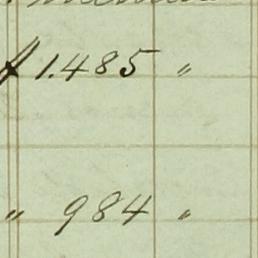 1.485 "
" 984 "